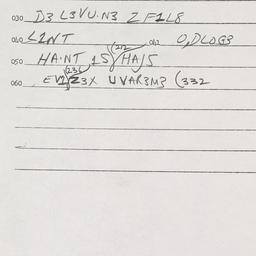 030 D3 L3VU.N3 ZF1L8
040 L1NT 042 O,DLOG3
050 HA.NT,15 (212 HAJS
060 EV1 (236 Z3X UVAR3M3 (332